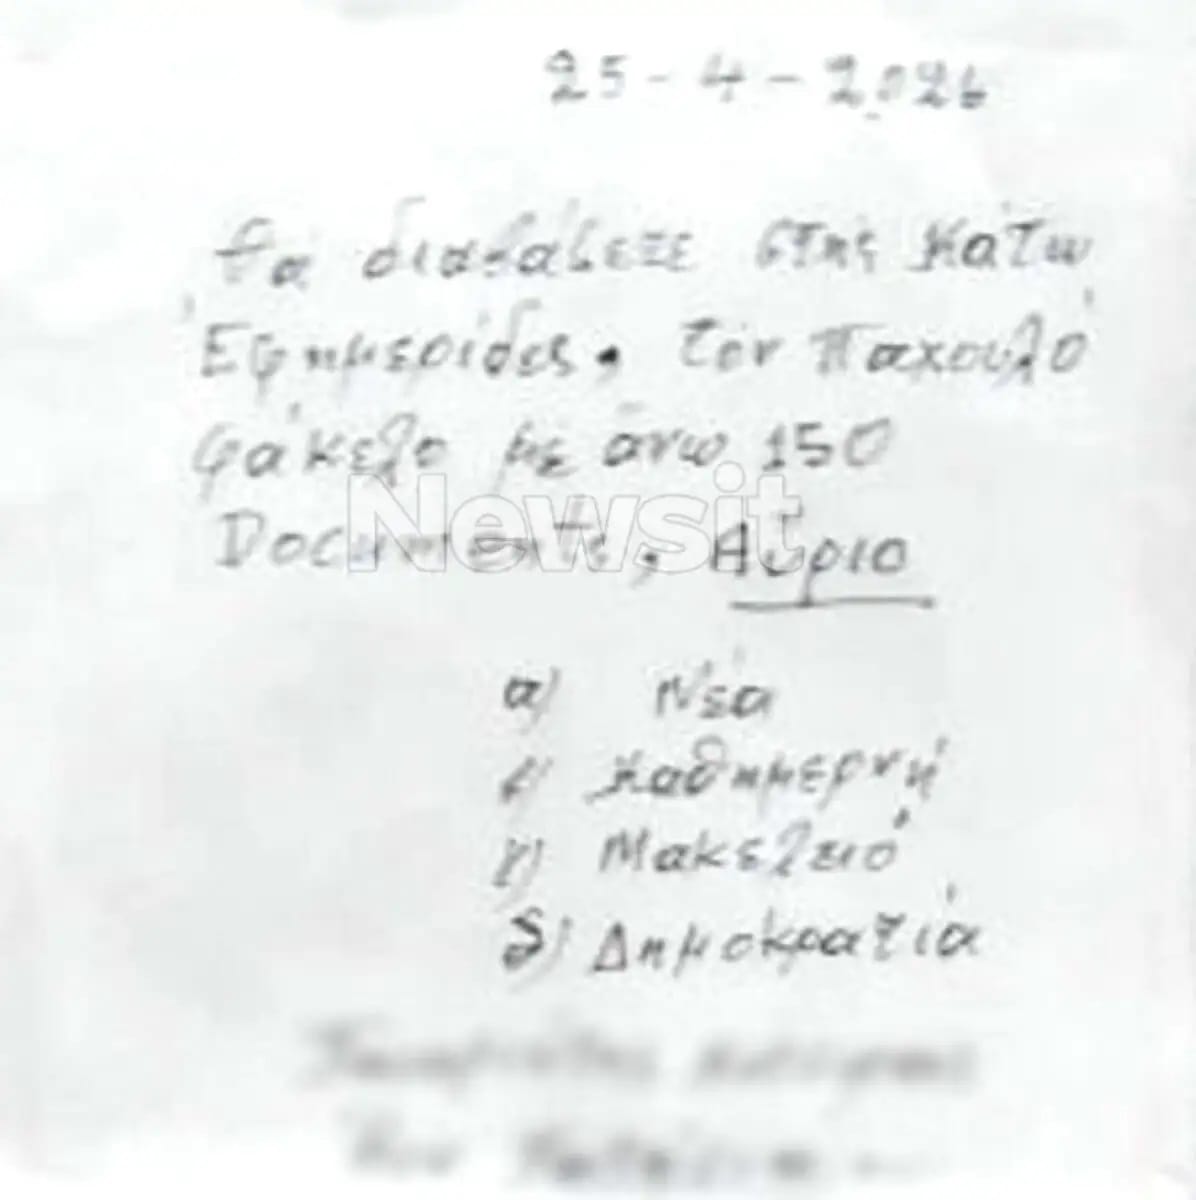 25-4-2026
θα διαβάσετε στης κάτω
Εφημερίδες, τον Παχουλό
φάκελο με άνω 150
Documents, Αύριο
Newsit
α) Νέα
β) Καθημερνή
γ) Μακελειό
δ) Δημοκρατία